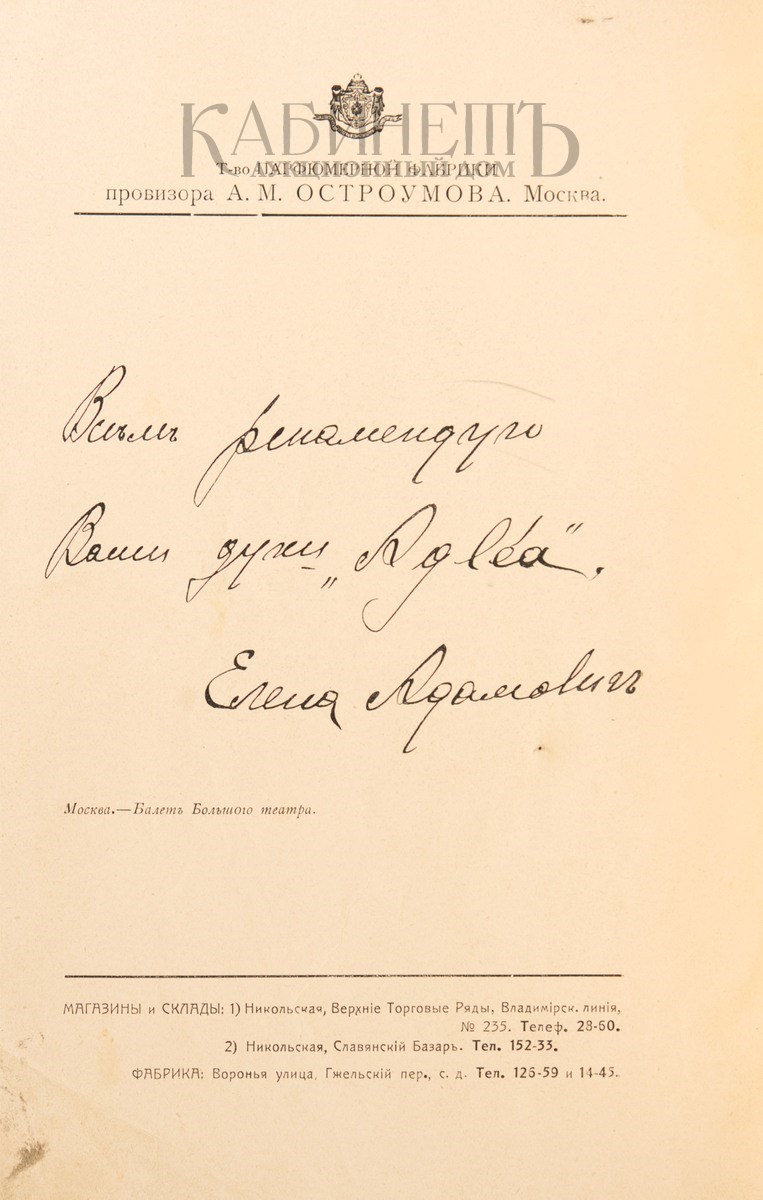 КАБИНЕТЪ
АУКЦИОННЫЙ ДОМ
Т-во ПАРФЮМЕРНОЙ ФАБРИКИ
провизора А. М. ОСТРОУМОВА. Москва.
Всѣмъ рекамендую
Ваши духи „Agléa“.
Елена Адамовичъ
Москва.—Балетъ Большого театра.
МАГАЗИНЫ и СКЛАДЫ: 1) Никольская, Верхніе Торговые Ряды, Владимірск. линія,
№ 235. Телеф. 28-60.
2) Никольская, Славянскій Базаръ. Тел. 152-33.
ФАБРИКА: Воронья улица, Гжельскій пер., с. д. Тел. 126-59 и 14-45.